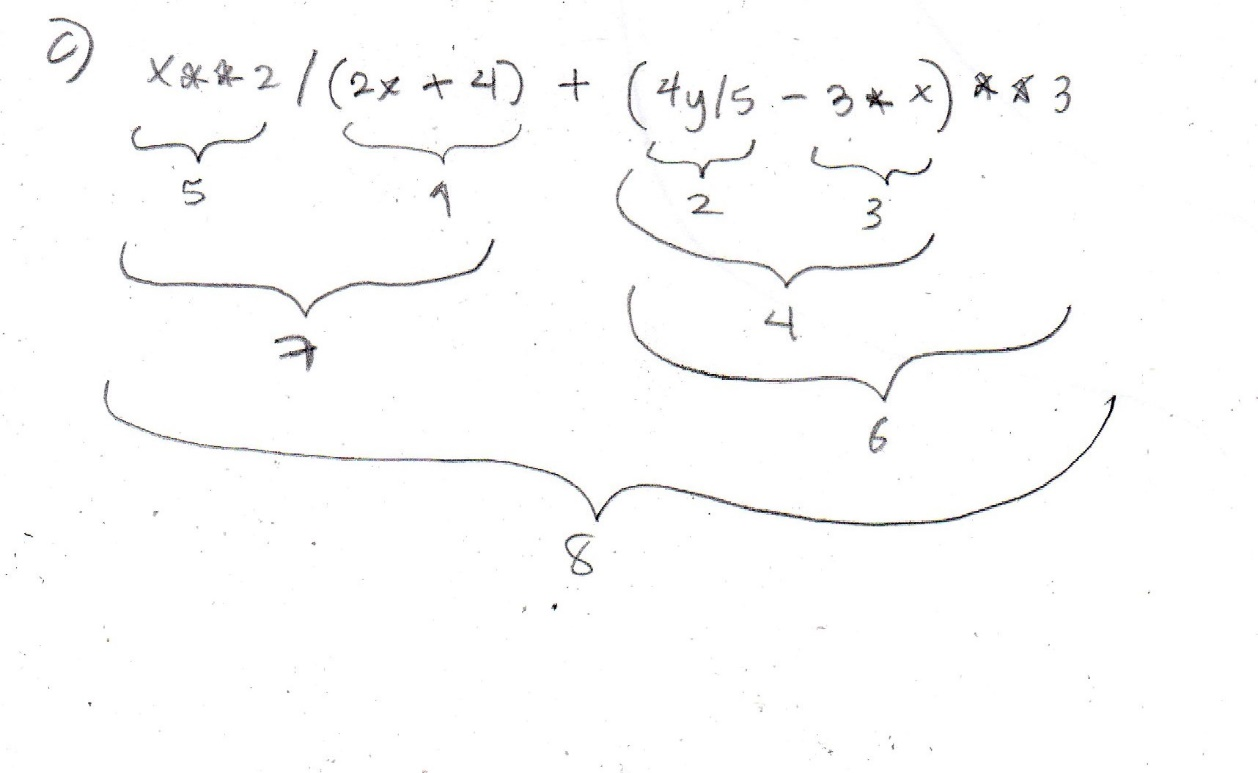 c) x**2/(2x + 4) + (4y/5 - 3*x)**3
5 1 2 3
4
7
6
8